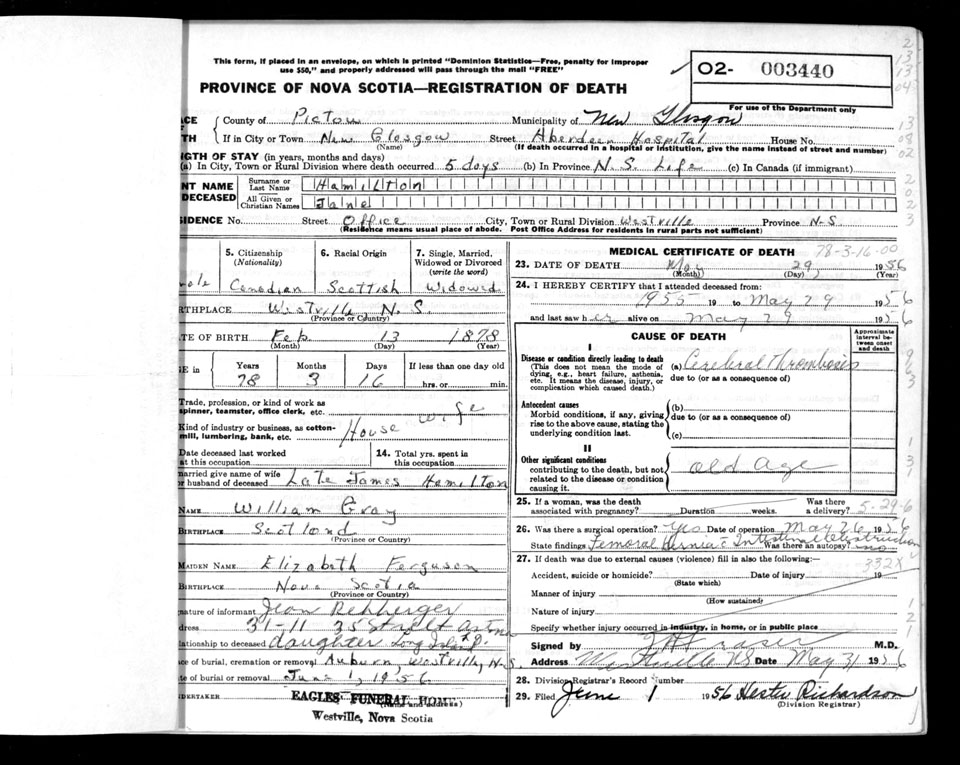 This form, if placed in an envelope, on which is printed "Dominion Statistics—Free, penalty for improper
use $50," and properly addressed will pass through the mail "FREE"
O2- 003440
For use of the Department only
PROVINCE OF NOVA SCOTIA—REGISTRATION OF DEATH
ACE County of Pictou Municipality of New Glasgow
TH If in City or Town New Glasgow Street Aberdeen Hospital House No.
(Name) (If death occurred in a hospital or institution, give the name instead of street and number)
NGTH OF STAY (in years, months and days)
(a) In City, Town or Rural Division where death occurred 5 days (b) In Province N.S. Life (c) In Canada (if immigrant)
NT NAME Surname or Last Name Hamilton
DECEASED All Given or Christian Names Jane
SIDENCE No. Street Office City, Town or Rural Division Westville Province N.S.
(Residence means usual place of abode. Post Office Address for residents in rural parts not sufficient)
5. Citizenship (Nationality) 6. Racial Origin 7. Single, Married, Widowed or Divorced (write the word)
Canadian Scottish Widowed
RTHPLACE Westville, N.S.
(Province or Country)
TE OF BIRTH Feb. 13 1878
(Month) (Day) (Year)
GE in Years Months Days If less than one day old
78 3 16 hrs. or min.
Trade, profession, or kind of work as
spinner, teamster, office clerk, etc.
Kind of industry or business, as cotton-
mill, lumbering, bank, etc. House wife
Date deceased last worked
at this occupation
14. Total yrs. spent in
this occupation
married give name of wife
or husband of deceased Late James Hamilton
NAME William Gray
BIRTHPLACE Scotland
(Province or Country)
MAIDEN NAME Elizabeth Ferguson
BIRTHPLACE Nova Scotia
(Province or Country)
gnature of informant Jean Rehberger
dress 31-11 35 Street
lationship to deceased daughter Long Island
ce of burial, cremation or removal Auburn, Westville, N.S.
te of burial or removal June 1, 1956
DERTAKER EAGLES FUNERAL HOME
(Name and address)
Westville, Nova Scotia
MEDICAL CERTIFICATE OF DEATH 78-3-16-00
23. DATE OF DEATH May 29, 1956
(Month) (Day) (Year)
24. I HEREBY CERTIFY that I attended deceased from:
1955 19 to May 29 1956
and last saw her alive on May 29 1956
CAUSE OF DEATH
Approximate interval between onset and death
I
Disease or condition directly leading to death
(This does not mean the mode of
dying, e.g., heart failure, asthenia,
etc. It means the disease, injury, or
complication which caused death.)
(a) Cerebral Thrombosis
due to (or as a consequence of)
Antecedent causes
Morbid conditions, if any, giving
rise to the above cause, stating the
underlying condition last.
(b)
due to (or as a consequence of)
(c)
II
Other significant conditions
contributing to the death, but not
related to the disease or condition
causing it.
old Age
25. If a woman, was the death Was there
associated with pregnancy? Duration weeks. a delivery? 5-29-6
26. Was there a surgical operation? Yes Date of operation May 26 1956
State findings Femoral Hernia c Intestinal Obstruction Was there an autopsy? no
27. If death was due to external causes (violence) fill in also the following:— 332X
Accident, suicide or homicide? Date of injury 19
(State which)
Manner of injury
(How sustained)
Nature of injury
Specify whether injury occurred in industry, in home, or in public place
Signed by Fraser M.D.
Address Westville NS Date May 31 1956
28. Division Registrar's Record Number
29. Filed June 1 1956 Hester Richardson
(Division Registrar)